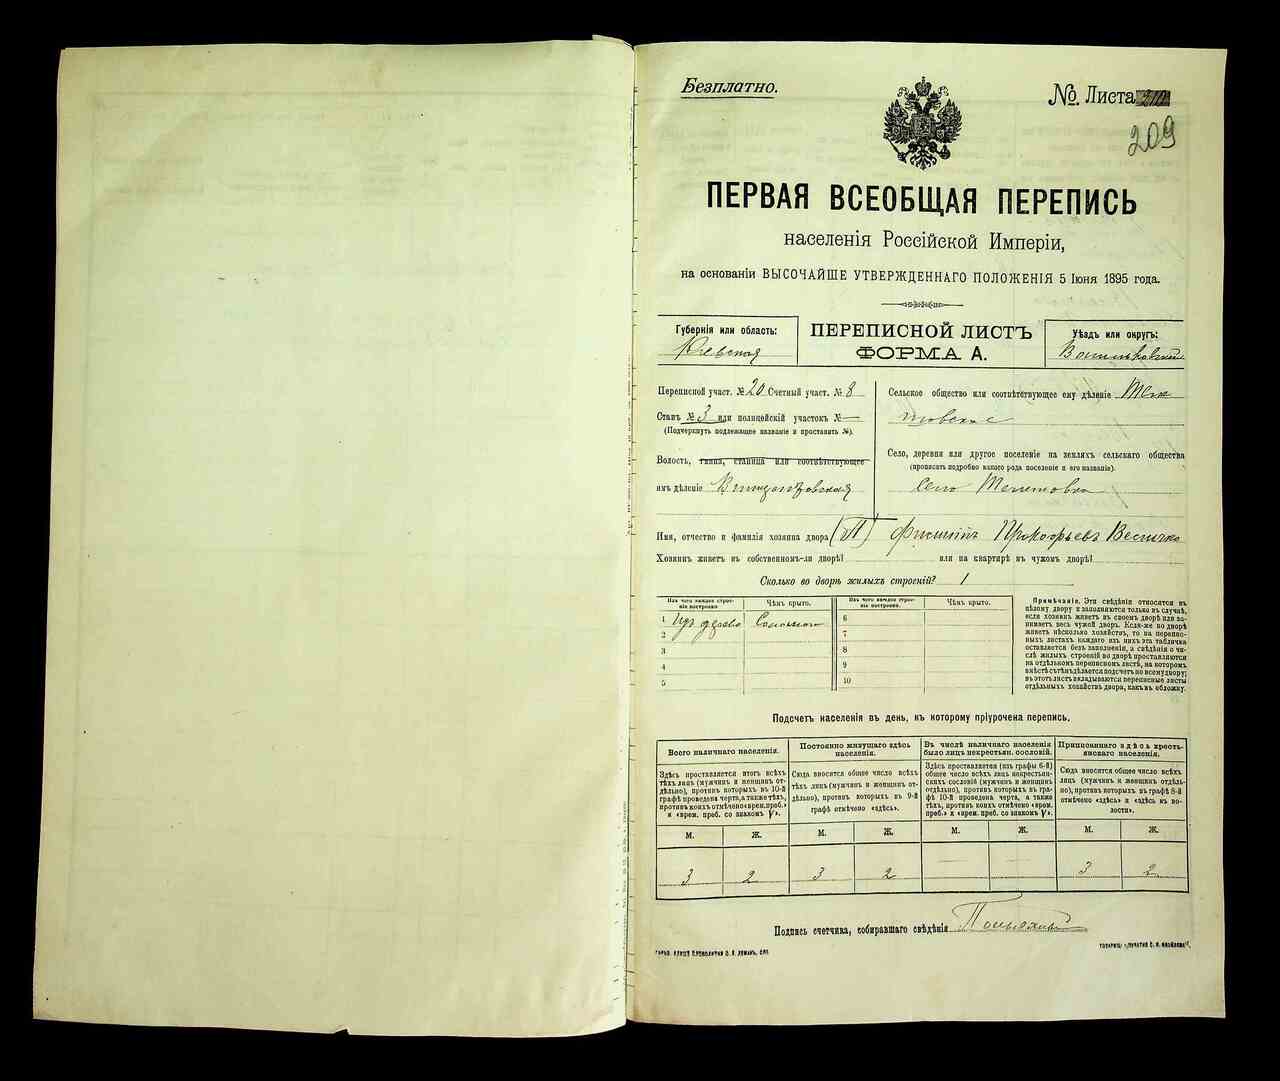 Безплатно.
№ Листа
209
ПЕРВАЯ ВСЕОБЩАЯ ПЕРЕПИСЬ
населенія Россійской Имперіи,
на основаніи ВЫСОЧАЙШЕ УТВЕРЖДЕННАГО ПОЛОЖЕНІЯ 5 Іюня 1895 года.
Губернія или область:
Кіевская
ПЕРЕПИСНОЙ ЛИСТЪ
ФОРМА А.
Уѣздъ или округъ:
Васильковскій
Переписной участ. № 20 Счетный участ. № 8
Станъ № 3 или полицейскій участокъ № —
(Подчеркнуть подлежащее названіе и проставить №).
Волость, гмина, станица или соотвѣтствующее
имъ дѣленіе
Сельское общество или соотвѣтствующее ему дѣленіе
Село, деревня или другое поселеніе на земляхъ сельскаго общества
(прописать подробно какого рода поселеніе и его названіе).
Село
Имя, отчество и фамилія хозяина двора (П) Прокофьевъ Величко
Хозяинъ живетъ въ собственномъ-ли дворѣ? или на квартирѣ въ чужомъ дворѣ?
Сколько во дворѣ жилыхъ строеній? 1
Изъ чего каждое строеніе построено
Чѣмъ крыто.
Изъ чего каждое строеніе построено.
Чѣмъ крыто.
1 Изъ дерева Соломою
2
3
4
5
6
7
8
9
10
Примѣчаніе. Эти свѣдѣнія относятся къ
цѣлому двору и заполняются только въ случаѣ,
если хозяинъ живетъ въ своемъ дворѣ или за-
нимаетъ весь чужой дворъ. Если-же во дворѣ
живетъ нѣсколько хозяйствъ, то на перепис-
ныхъ листахъ каждаго изъ нихъ эта табличка
оставляется безъ заполненія, а свѣдѣнія о чи-
слѣ жилыхъ строеній во дворѣ проставляются
на отдѣльномъ переписномъ листѣ, на которомъ
вмѣстѣ съ тѣмъ дѣлается подсчетъ по всему двору;
въ этотъ листъ вкладываются переписные листы
отдѣльныхъ хозяйствъ двора, какъ въ обложку.
Подсчетъ населенія въ день, къ которому пріурочена перепись.
Всего наличнаго населенія.
Постоянно живущаго здѣсь
населенія.
Въ числѣ наличнаго населенія
было лицъ некрестьян. сословій.
Приписаннаго здѣсь кресть-
янскаго населенія.
Здѣсь проставляется итогъ всѣхъ
тѣхъ лицъ (мужчинъ и женщинъ от-
дѣльно), противъ которыхъ въ 10-й
графѣ проведена черта, а также тѣхъ,
противъ коихъ отмѣчено «врем. преб.»
и «врем. преб. со знакомъ V».
Сюда вносится общее число всѣхъ
тѣхъ лицъ (мужчинъ и женщинъ от-
дѣльно), противъ которыхъ въ 9-й
графѣ отмѣчено «здѣсь».
Здѣсь проставляется (изъ графы 6-й)
общее число всѣхъ лицъ некрестьян-
скихъ сословій (мужчинъ и женщинъ
отдѣльно), противъ которыхъ въ гра-
фѣ 10-й проведена черта, а также
тѣхъ, противъ коихъ отмѣчено «врем.
преб.» и «врем. преб. со знакомъ V».
Сюда вносится общее число всѣхъ
лицъ (мужчинъ и женщинъ отдѣль-
но), противъ которыхъ въ графѣ 8-й
отмѣчено «здѣсь» и «здѣсь къ во-
лости».
М. Ж. М. Ж. М. Ж. М. Ж.
3 2 3 2 — — 3 2
Подпись счетчика, собиравшаго свѣдѣнія